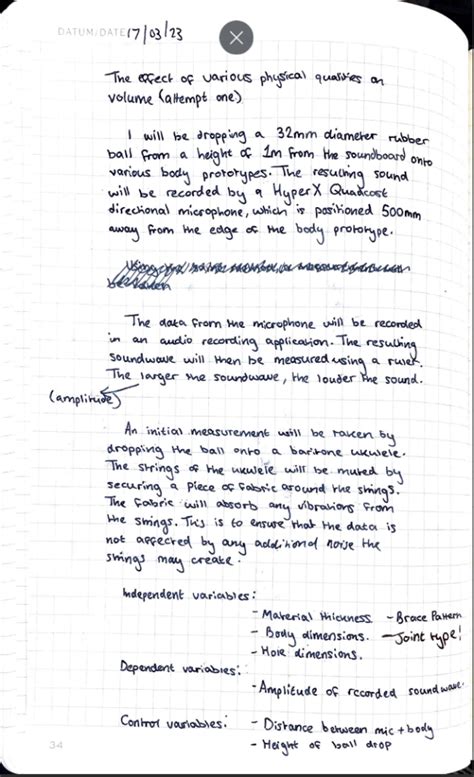 DATUM/DATE 17/03/23
The effect of various physical qualities on
volume (attempt one)
I will be dropping a 32mm diameter rubber
ball from a height of 1m from the soundboard onto
various body prototypes. The resulting sound
will be recorded by a HyperX Quadcast
directional microphone, which is positioned 500mm
away from the edge of the body prototype.
The data from the microphone will be recorded
in an audio recording application. The resulting
soundwave will then be measured using a ruler.
The larger the soundwave, the louder the sound.
(amplitude)
An initial measurement will be taken by
dropping the ball onto a baritone ukulele.
The strings of the ukulele will be muted by
securing a piece of fabric around the strings.
The fabric will absorb any vibrations from
the strings. This is to ensure that the data is
not affected by any additional noise the
strings may create.
Independent variables:
- Material thickness - Brace Pattern
- Body dimensions. - Joint type!
- Hole dimensions.
Dependent variables:
- Amplitude of recorded soundwave.
Control variables: - Distance between mic + body
- Height of ball drop
34